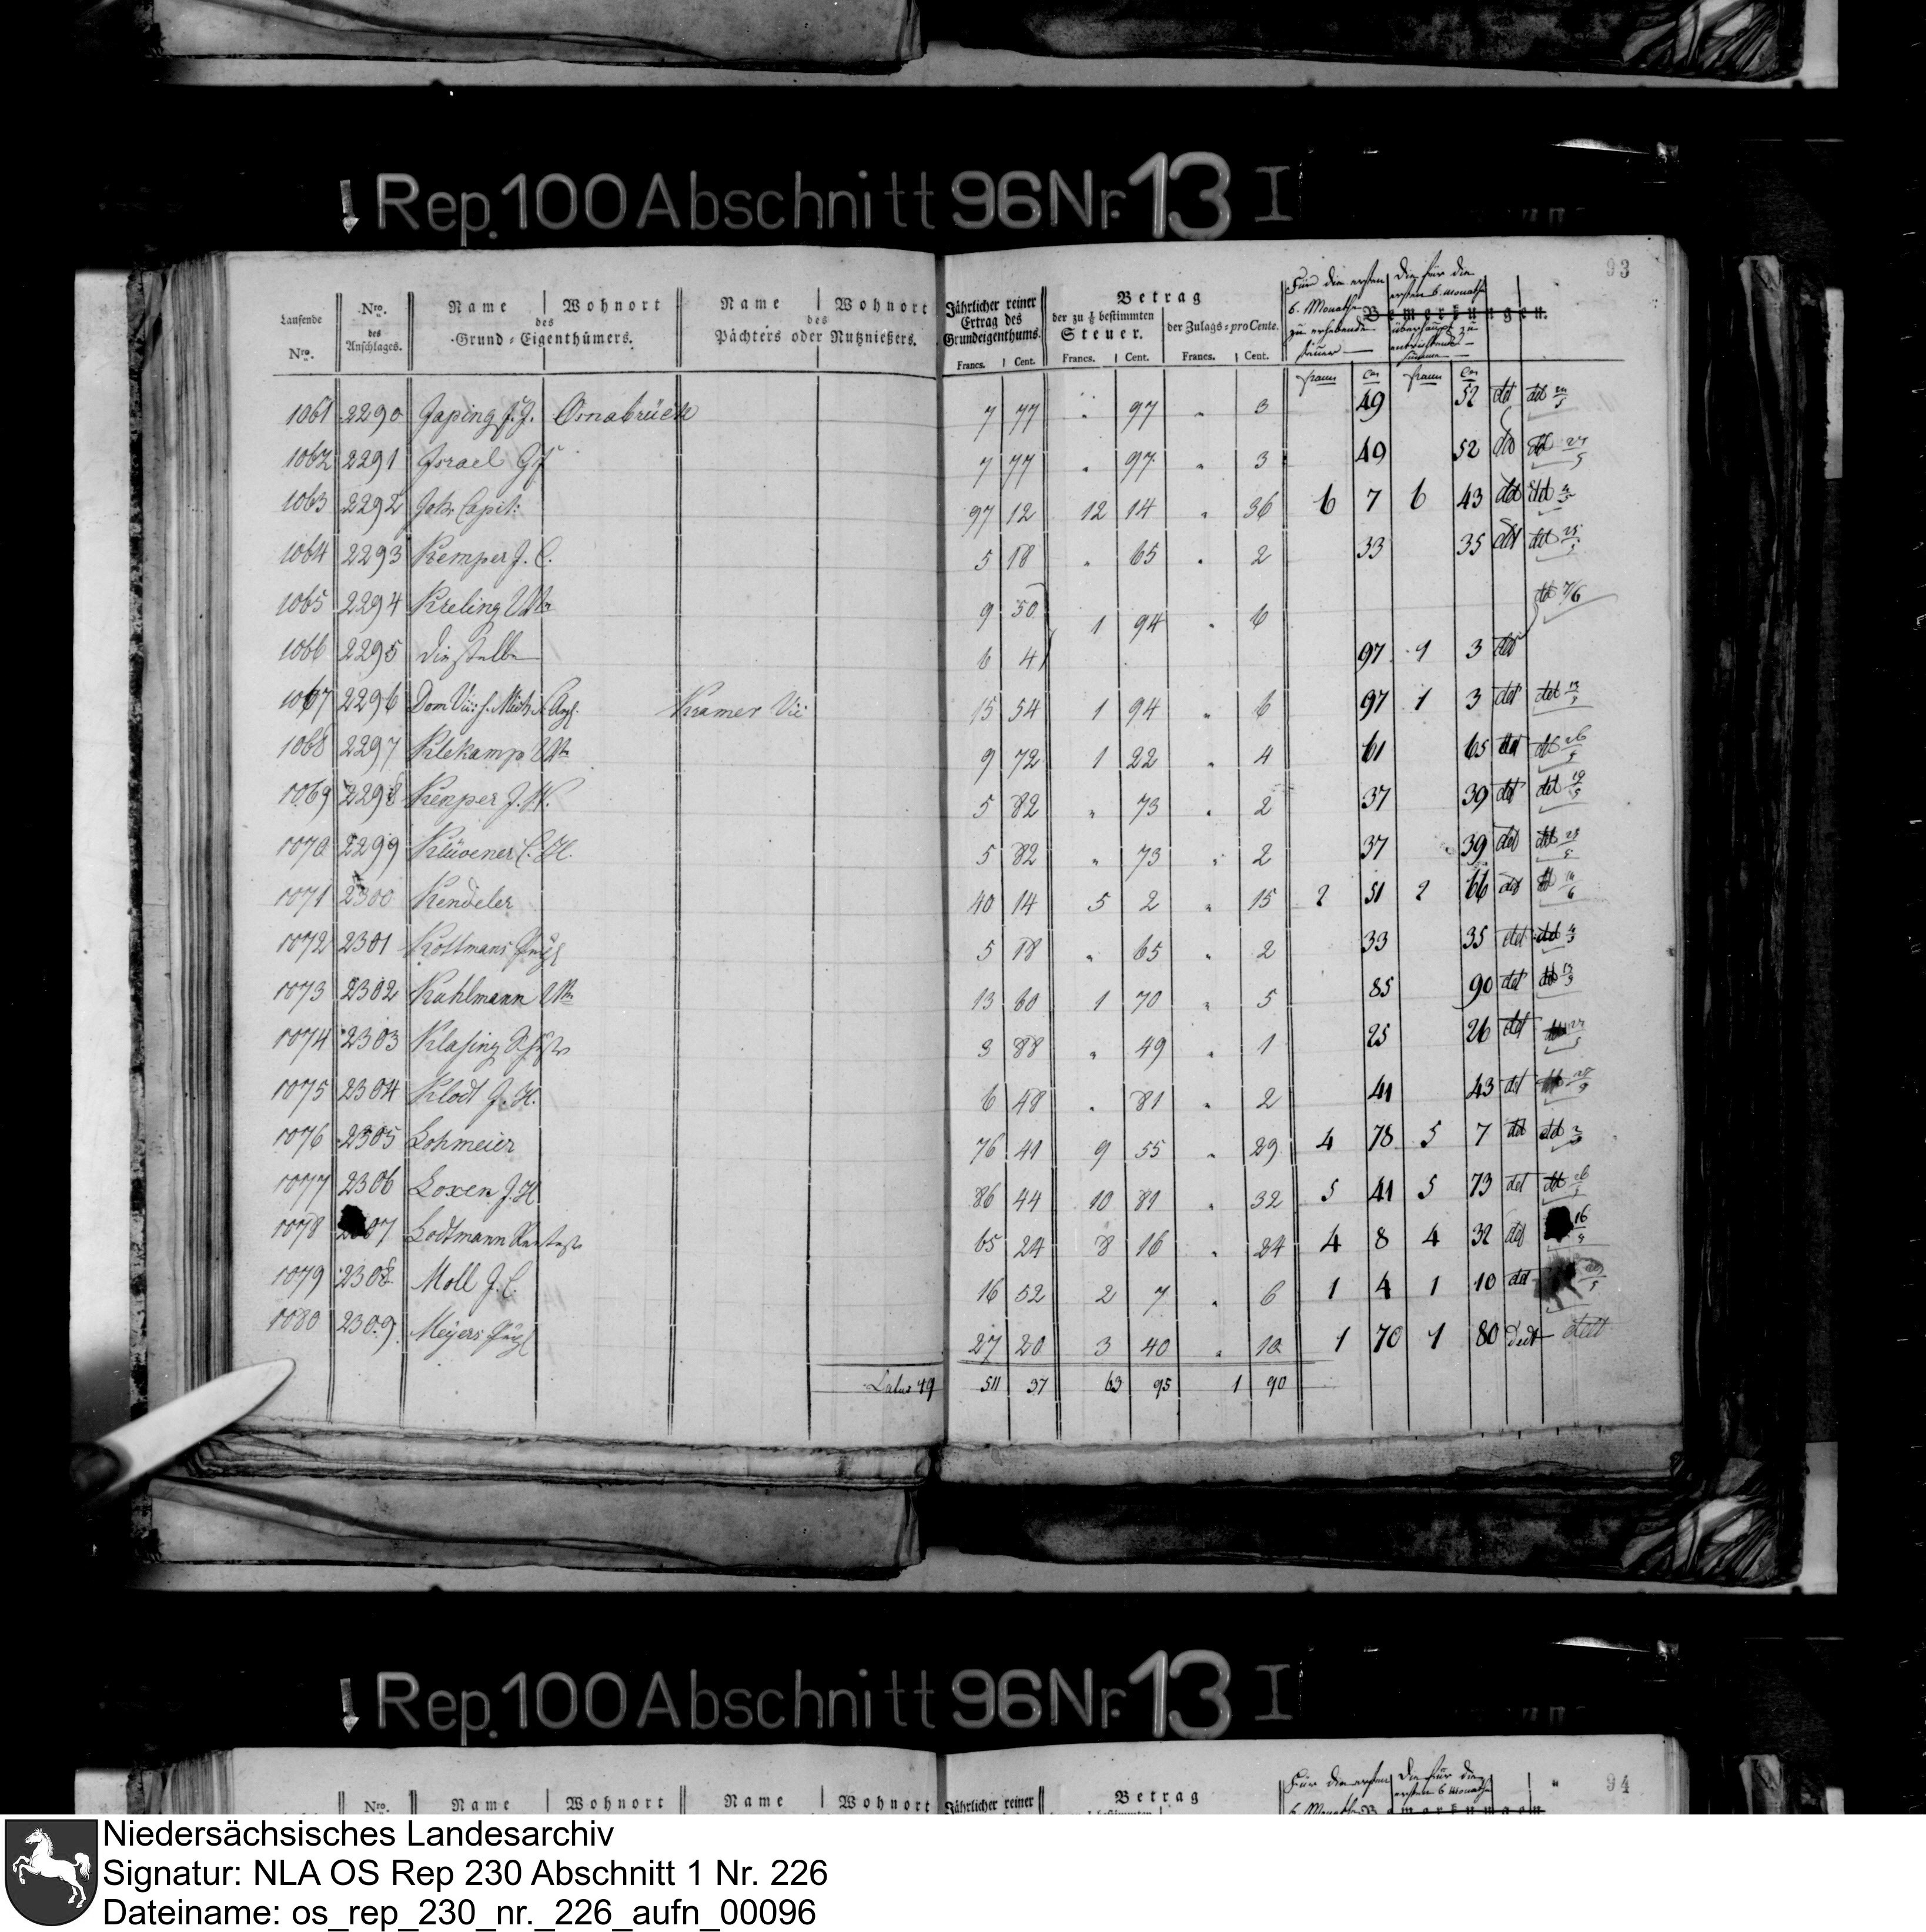 ↓ Rep. 100 Abschnitt 96 Nr. 13 I
93
Laufende Nro. | Nro. des Anschlages. | Name | Wohnort des Grund-Eigenthümers. | Name | Wohnort des Pächters oder Nutznießers. | Jährlicher reiner Ertrag des Grundeigenthums. | Betrag der zu 1/8 bestimmten Steuer. | der Zulags-pro Cente. | Für die ersten 6. Monathe zu erhebende Steuer | Die für die ersten 6. Monathe überhaupt zu entrichtende Summe | Bemerkungen.
Francs. | Cent. | Francs. | Cent. | Francs. | Cent. | franc | Cen | franc | Cen
1061 2290 Japing J. J. Osnabrück 7 77 " 97 " 3 49 52 det det
1062 2291 Israel 7 77 " 97 " 3 49 52 det
1063 2292 Capit: 97 12 12 14 " 36 6 7 6 43 det det
1064 2293 Kemper J. C. 5 18 " 65 " 2 33 35 det det
1065 2294 Kreling Wtw 9 50 1 94 " 6 det 7/6
1066 2295 dieselbe 6 4 97 1 3 det
1067 2296 Dom Kramer Vic 15 54 1 94 " 6 97 1 3 det det
1068 2297 Klekamp Wtw 9 72 1 22 " 4 61 65 det det
1069 2298 Kenper J. W. 5 82 " 73 " 2 37 39 det det
1070 2299 Klüvener C. H. 5 82 " 73 " 2 37 39 det det
1071 2300 Kendeler 40 14 5 2 " 15 2 51 2 66 det det
1072 2301 Kottmans 5 18 " 65 " 2 33 35 det det
1073 2302 Kuhlmann Wtw 13 60 1 70 " 5 85 90 det det
1074 2303 Klasing 3 88 " 49 " 1 25 26 det
1075 2304 Klodt J. H. 6 48 " 81 " 2 41 43 det
1076 2305 Lohmeier 76 41 9 55 " 29 4 78 5 7 det det
1077 2306 Loxen J. H. 86 44 10 81 " 32 5 41 5 73 det det
1078 07 Lodtmann 65 24 8 16 " 24 4 8 4 32 det
1079 2308 Moll J. C. 16 52 2 7 " 6 1 4 1 10 det
1080 2309 Meyers 27 20 3 40 " 10 1 70 1 80 dett dett
Latus 49 511 37 63 95 1 90
↓ Rep. 100 Abschnitt 96 Nr. 13 I
94
Nro. | Name | Wohnort | Name | Wohnort | Jährlicher reiner | Betrag | Für die ersten | Die für die ersten 6 Monathe
6. Monathe Bemerkungen
Niedersächsisches Landesarchiv
Signatur: NLA OS Rep 230 Abschnitt 1 Nr. 226
Dateiname: os_rep_230_nr._226_aufn_00096